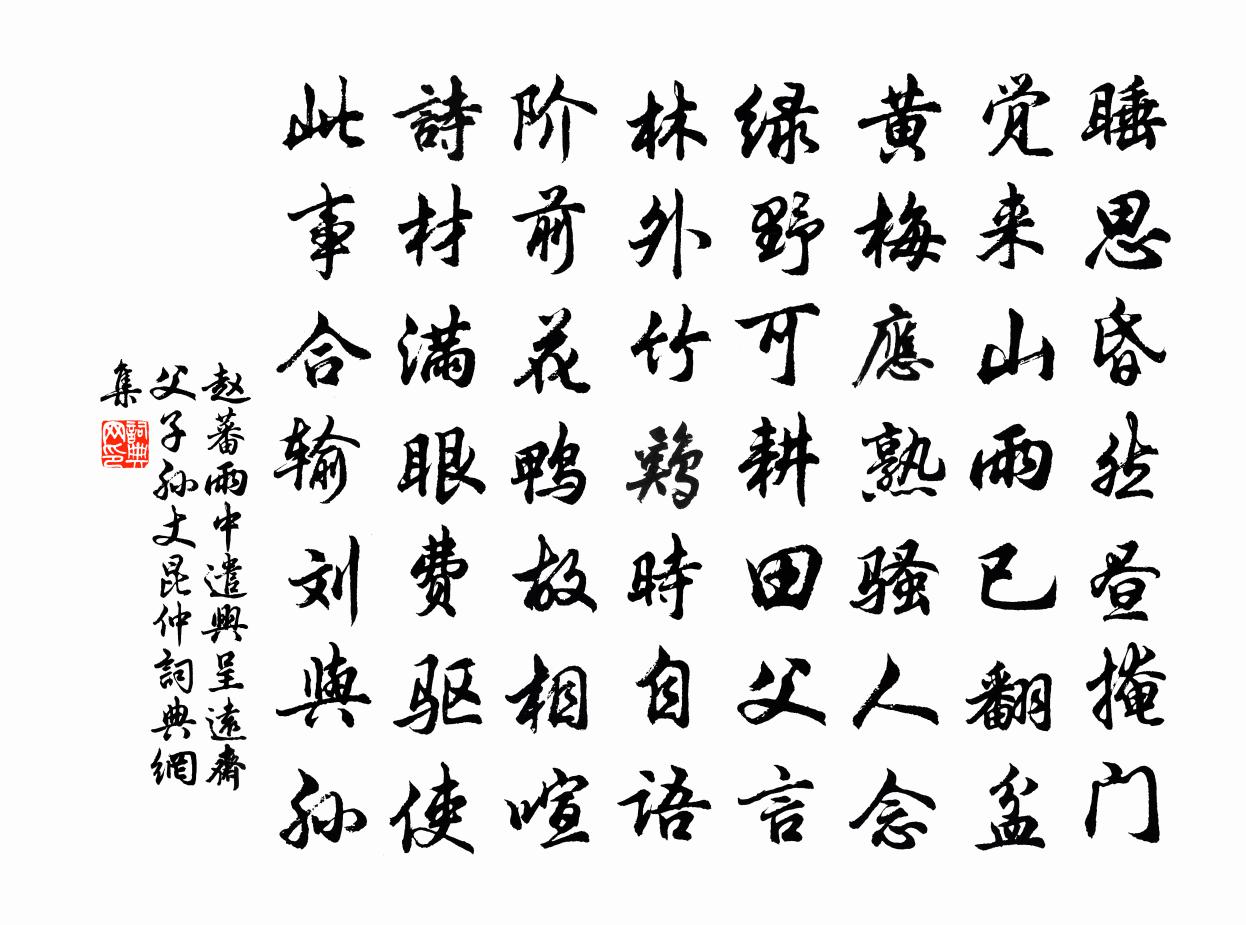 睡思昏然昼掩门
觉来山雨已翻盆
黄梅應熟骚人念
绿野可耕田父言
林外竹鶏時自语
阶前花鸭故相喧
詩材满眼费驱使
此事合输刘與孙
赵蕃雨中遣興呈遠齋
父子孙丈昆仲詞典網
集
詞典
网印